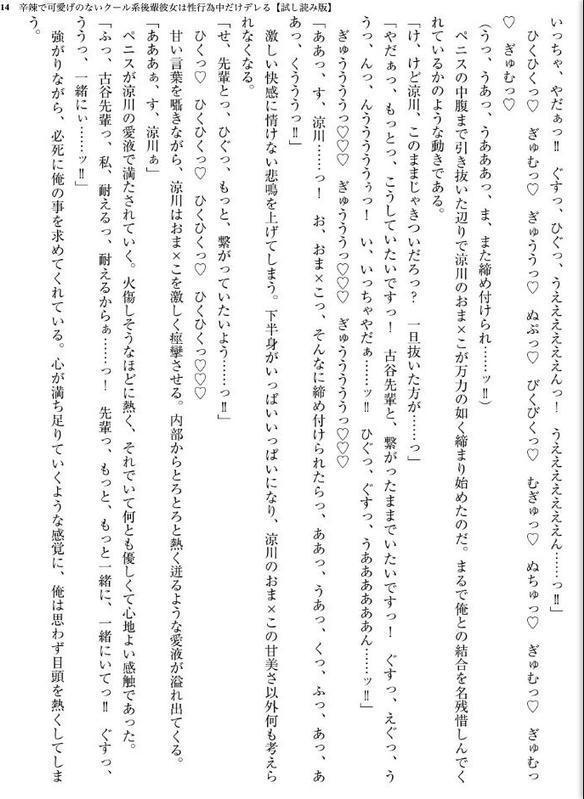 14　辛辣で可愛げのないクール系後輩彼女は性行為中だけデレる【試し読み版】
いっちゃ、やだぁっ‼　ぐすっ、ひぐっ、うえええええんっ！　うええええええん……っ‼」
　ひくひくっ♡　ぎゅむっ♡　ぎゅううっ♡　ぬぷっ♡　びくびくっ♡　むぎゅっ♡　ぬちゅっ♡　ぎゅむっ♡　ぎゅむっ
♡　ぎゅむっ♡
（うっ、うあっ、うああああっ、ま、また締め付けられ……ッ‼）
　ペニスの中腹まで引き抜いた辺りで涼川のおま×こが万力の如く締まり始めたのだ。まるで俺との結合を名残惜しんでく
れているかのような動きである。
「け、けど涼川、このままじゃきついだろっ？　一旦抜いた方が……っ」
「やだぁっ、もっとっ、こうしていたいですっ！　古谷先輩と、繋がったままでいたいですっ！　ぐすっ、えぐっ、う
うっ、んっ、んううううぅっ！　い、いっちゃやだぁ……ッ‼　ひぐっ、ぐすっ、うああああああん……ッ‼」
　ぎゅうううっ♡♡♡　ぎゅうううっ♡♡♡　ぎゅううううっ♡♡♡
「ああっ、す、涼川……っ！　お、おま×こっ、そんなに締め付けられたらっ、ああっ、うあっ、くっ、ふっ、あっ、あ
あっ、くうううっ‼」
　激しい快感に情けない悲鳴を上げてしまう。下半身がいっぱいいっぱいになり、涼川のおま×この甘美さ以外何も考えら
れなくなる。
「せ、先輩とっ、ひぐっ、もっと、繋がっていたいよう……っ‼」
　ひくひくっ♡　ひくひくっ♡　ひくひくっ♡♡♡
　甘い言葉を囁きながら、涼川はおま×こを激しく痙攣させる。内部からとろとろと熱く迸るような愛液が溢れ出てくる。
「あああぁ、す、涼川ぁ」
　ペニスが涼川の愛液で満たされていく。火傷しそうなほどに熱く、それでいて何とも優しくて心地よい感触であった。
「ふっ、古谷先輩っ、私、耐えるっ、耐えるからぁ……っ！　先輩っ、もっと、もっと一緒に、一緒にいてっ‼　ぐすっ、
ううっ、一緒にぃ……ッ‼」
　強がりながら、必死に俺の事を求めてくれている。心が満ち足りていくような感覚に、俺は思わず目頭を熱くしてしま
う。